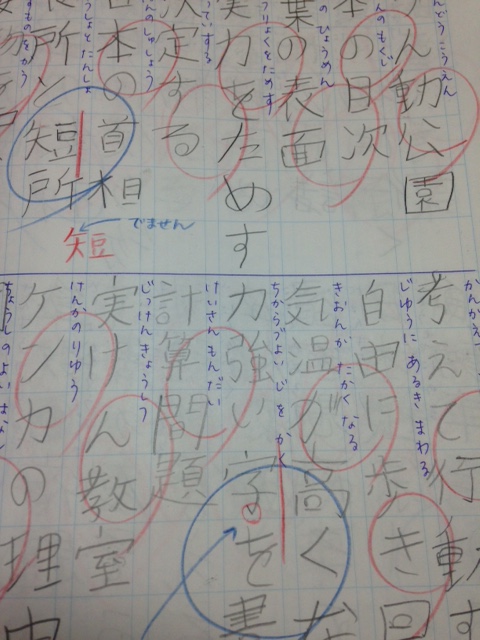 んどうこうえん
ん動公園
んのもくじ
本の目次
のひょうめん
葉の表面
つりょくをためす
実力をためす
っていする
定する
んのしゅしょう
本の首相
しょとたんしょ
所と短所
でません
短
かんがえ
考えて行動
じゆうにあるきまわる
自由に歩き回
きおんがたかくなる
気温が高くな
ちからづよいじをかく
力強い字を書
けいさんもんだい
計算問題
じっけんきょうしつ
実けん教室
けんかのりゆう
ケンカの理由